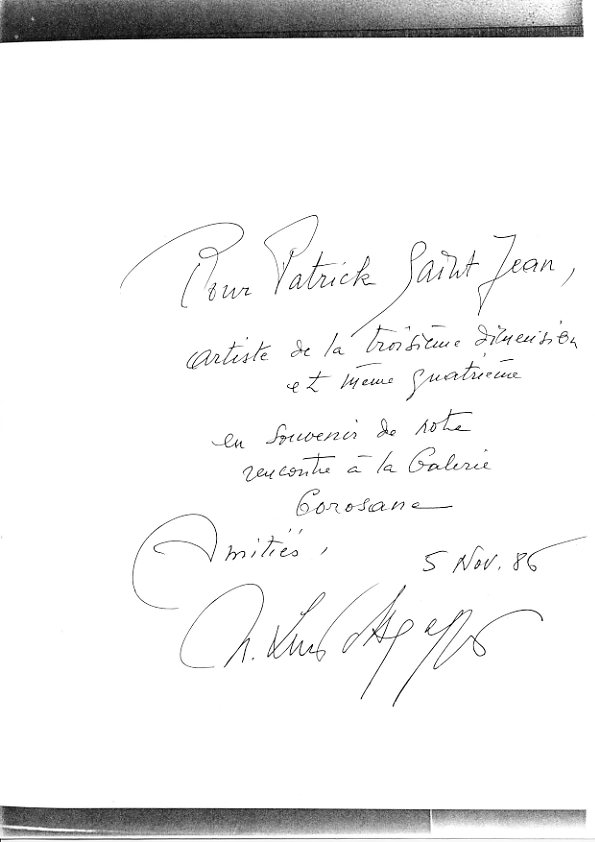 Pour Patrick Saint Jean,
artiste de la troisième dimension
et même quatrième
en souvenir de notre
rencontre à la Galerie
Corosane
Amitiés,
5 Nov. 86